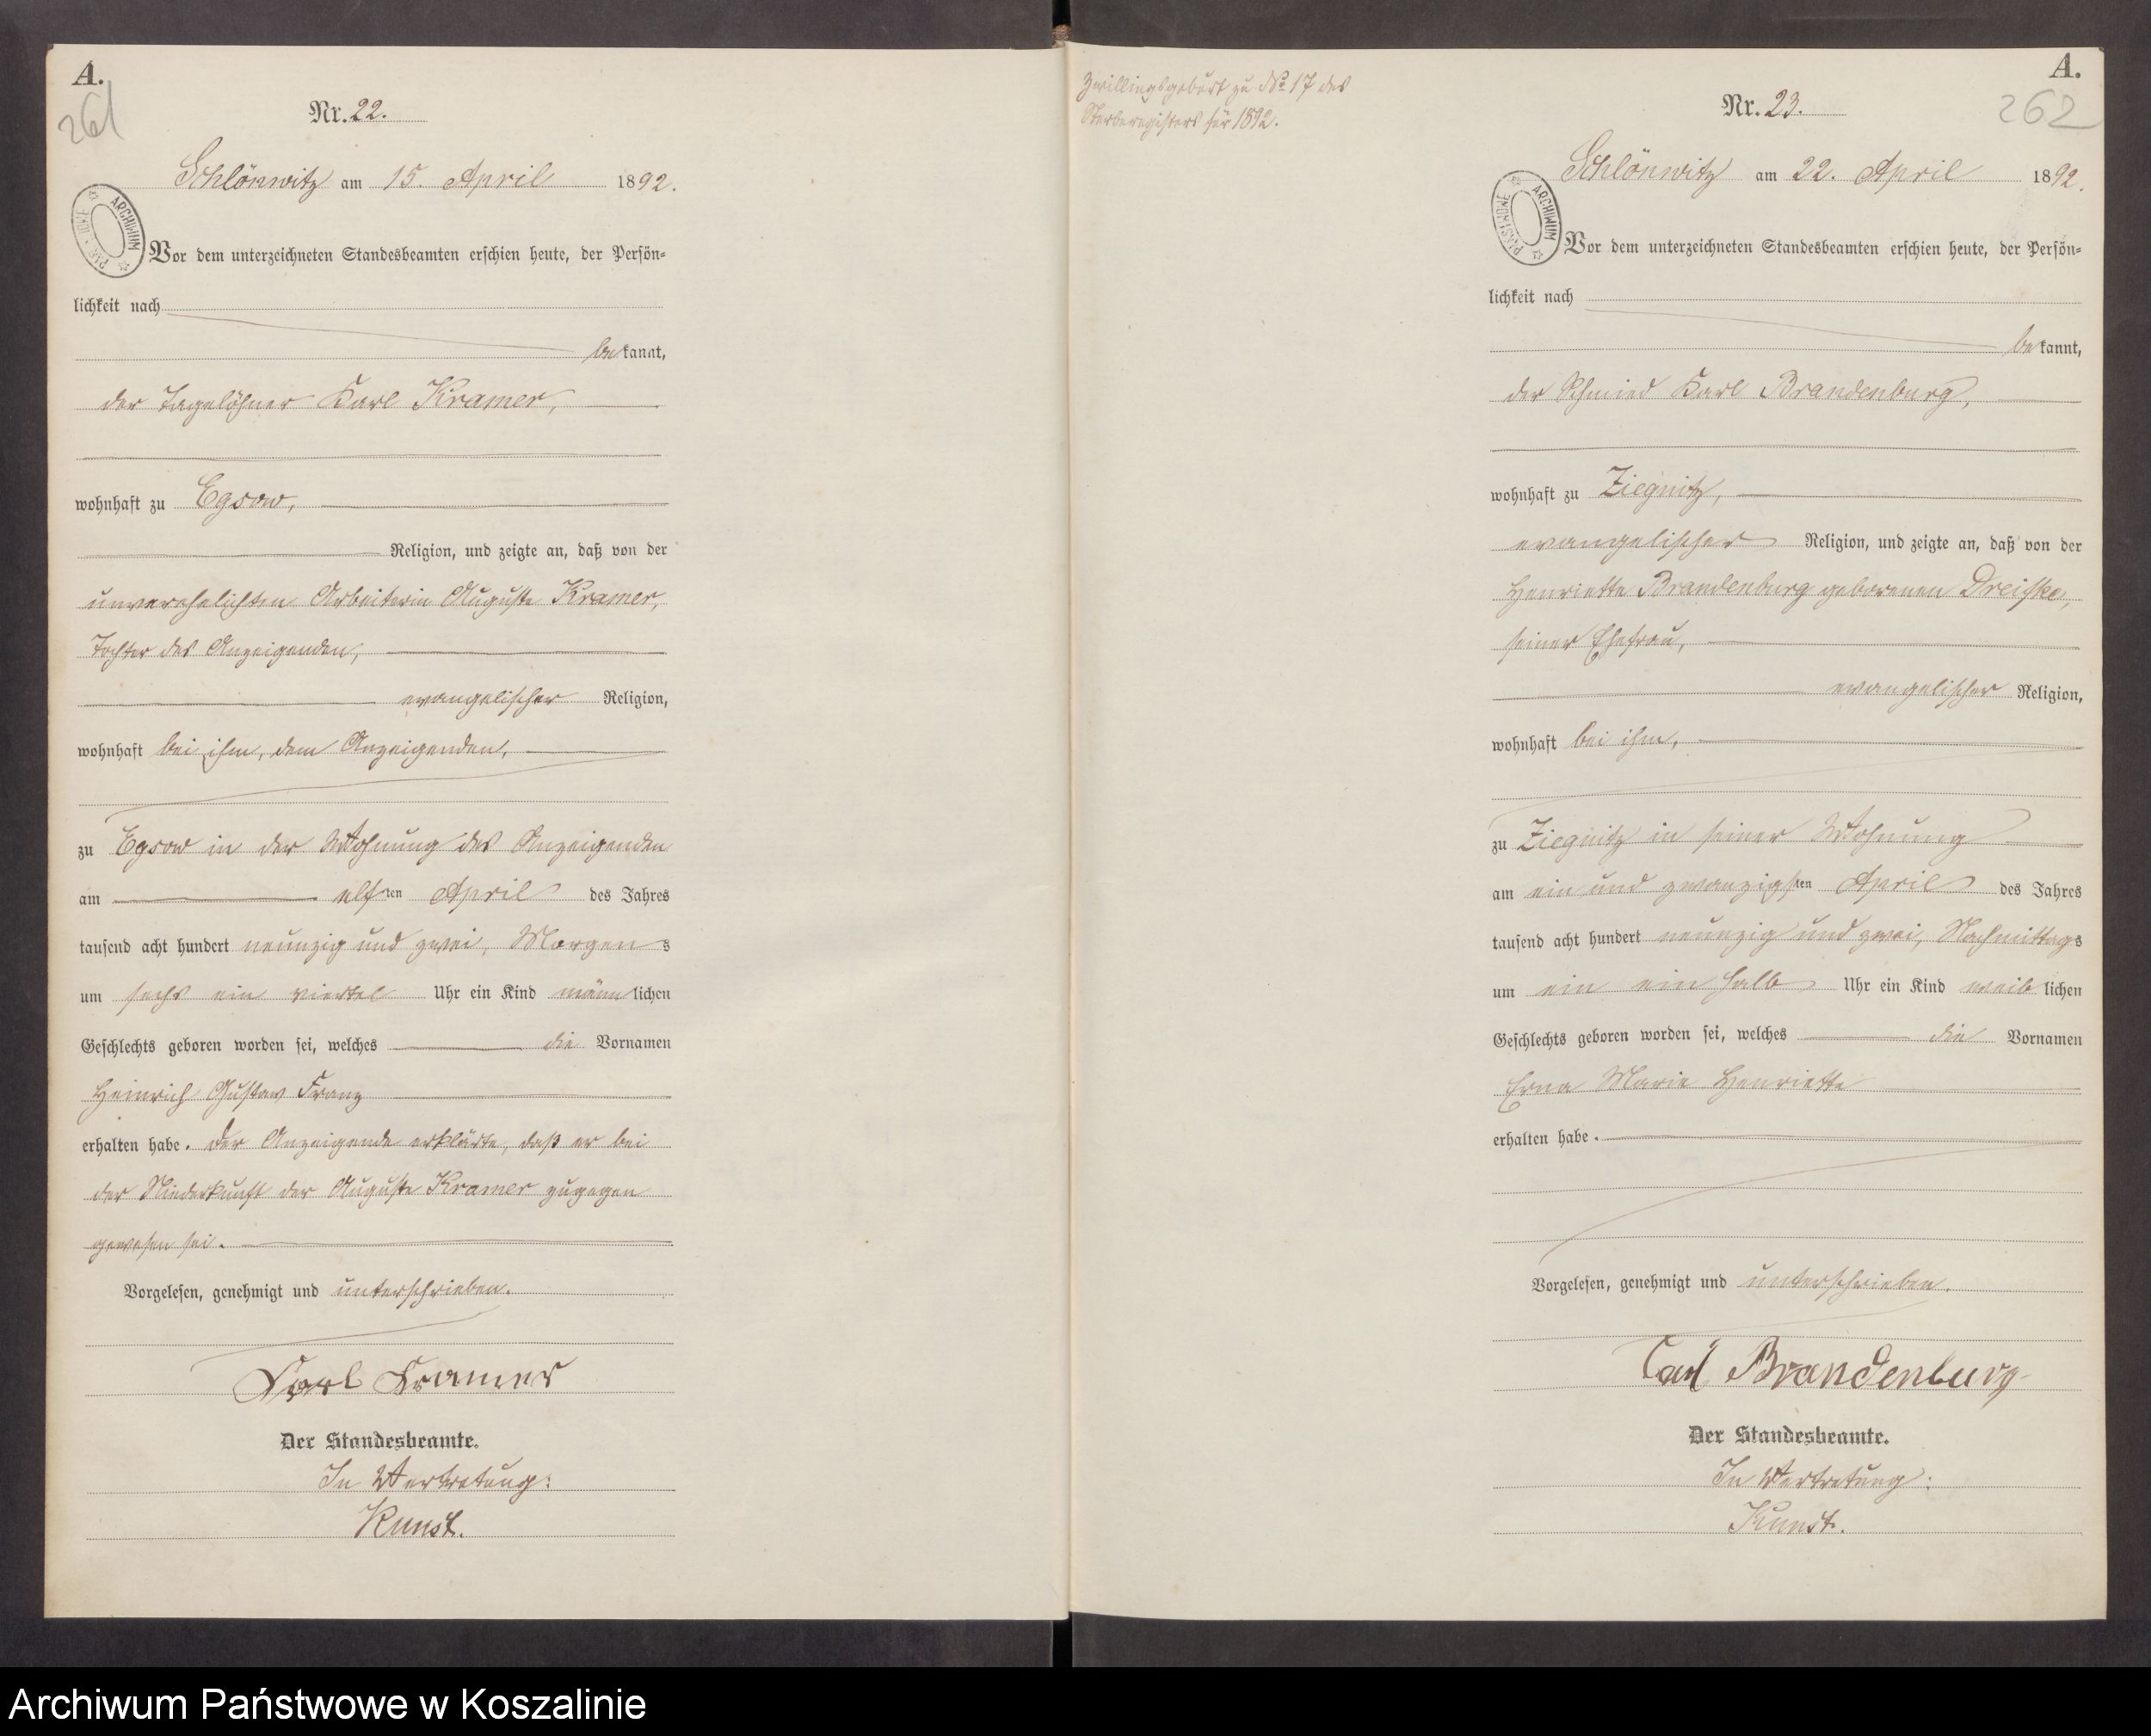 A.
261
Nr. 22.
Schlönwitz am 15. April 1892.
ARCHIWUM
Vor dem unterzeichneten Standesbeamten erschien heute, der Persön-
lichkeit nach
bekannt,
der Tagelöhner Karl Kramer,
wohnhaft zu Egsow,
Religion, und zeigte an, daß von der
unverehelichten Arbeiterin Auguste Kramer,
Tochter des Anzeigenden,
evangelischer Religion,
wohnhaft bei ihm, dem Anzeigenden,
zu Egsow in der Wohnung des Anzeigenden
am elften April des Jahres
tausend acht hundert neunzig und zwei, Morgens
um sechs ein viertel Uhr ein Kind männlichen
Geschlechts geboren worden sei, welches die Vornamen
Heinrich Gustav Franz
erhalten habe. Der Anzeigende erklärte, daß er bei
der Niederkunft der Auguste Kramer zugegen
gewesen sei.
Vorgelesen, genehmigt und unterschrieben.
Karl Kramer
Der Standesbeamte.
In Vertretung:
Kunst.
Zwillingsgeburt zu No 17 des
Sterberegisters für 1892.
A.
262
Nr. 23.
Schlönwitz am 22. April 1892.
ARCHIWUM PAŃSTWOWE
Vor dem unterzeichneten Standesbeamten erschien heute, der Persön-
lichkeit nach
bekannt,
der Schmied Karl Brandenburg,
wohnhaft zu Ziegnitz,
evangelischer Religion, und zeigte an, daß von der
Henriette Brandenburg geborenen Dreiske,
seiner Ehefrau,
evangelischer Religion,
wohnhaft bei ihm,
zu Ziegnitz in seiner Wohnung
am ein und zwanzigsten April des Jahres
tausend acht hundert neunzig und zwei, Nachmittags
um ein ein halb Uhr ein Kind weiblichen
Geschlechts geboren worden sei, welches die Vornamen
Erna Marie Henriette
erhalten habe.
Vorgelesen, genehmigt und unterschrieben.
Carl Brandenburg
Der Standesbeamte.
In Vertretung:
Kunst.
Archiwum Państwowe w Koszalinie